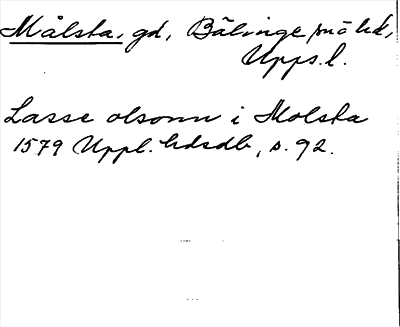 Målsta, gd, Bälinge sn o hd,
Upps.l.
Lasse olsonn i Molsta
1579 Uppl. hdsdb, s. 92.